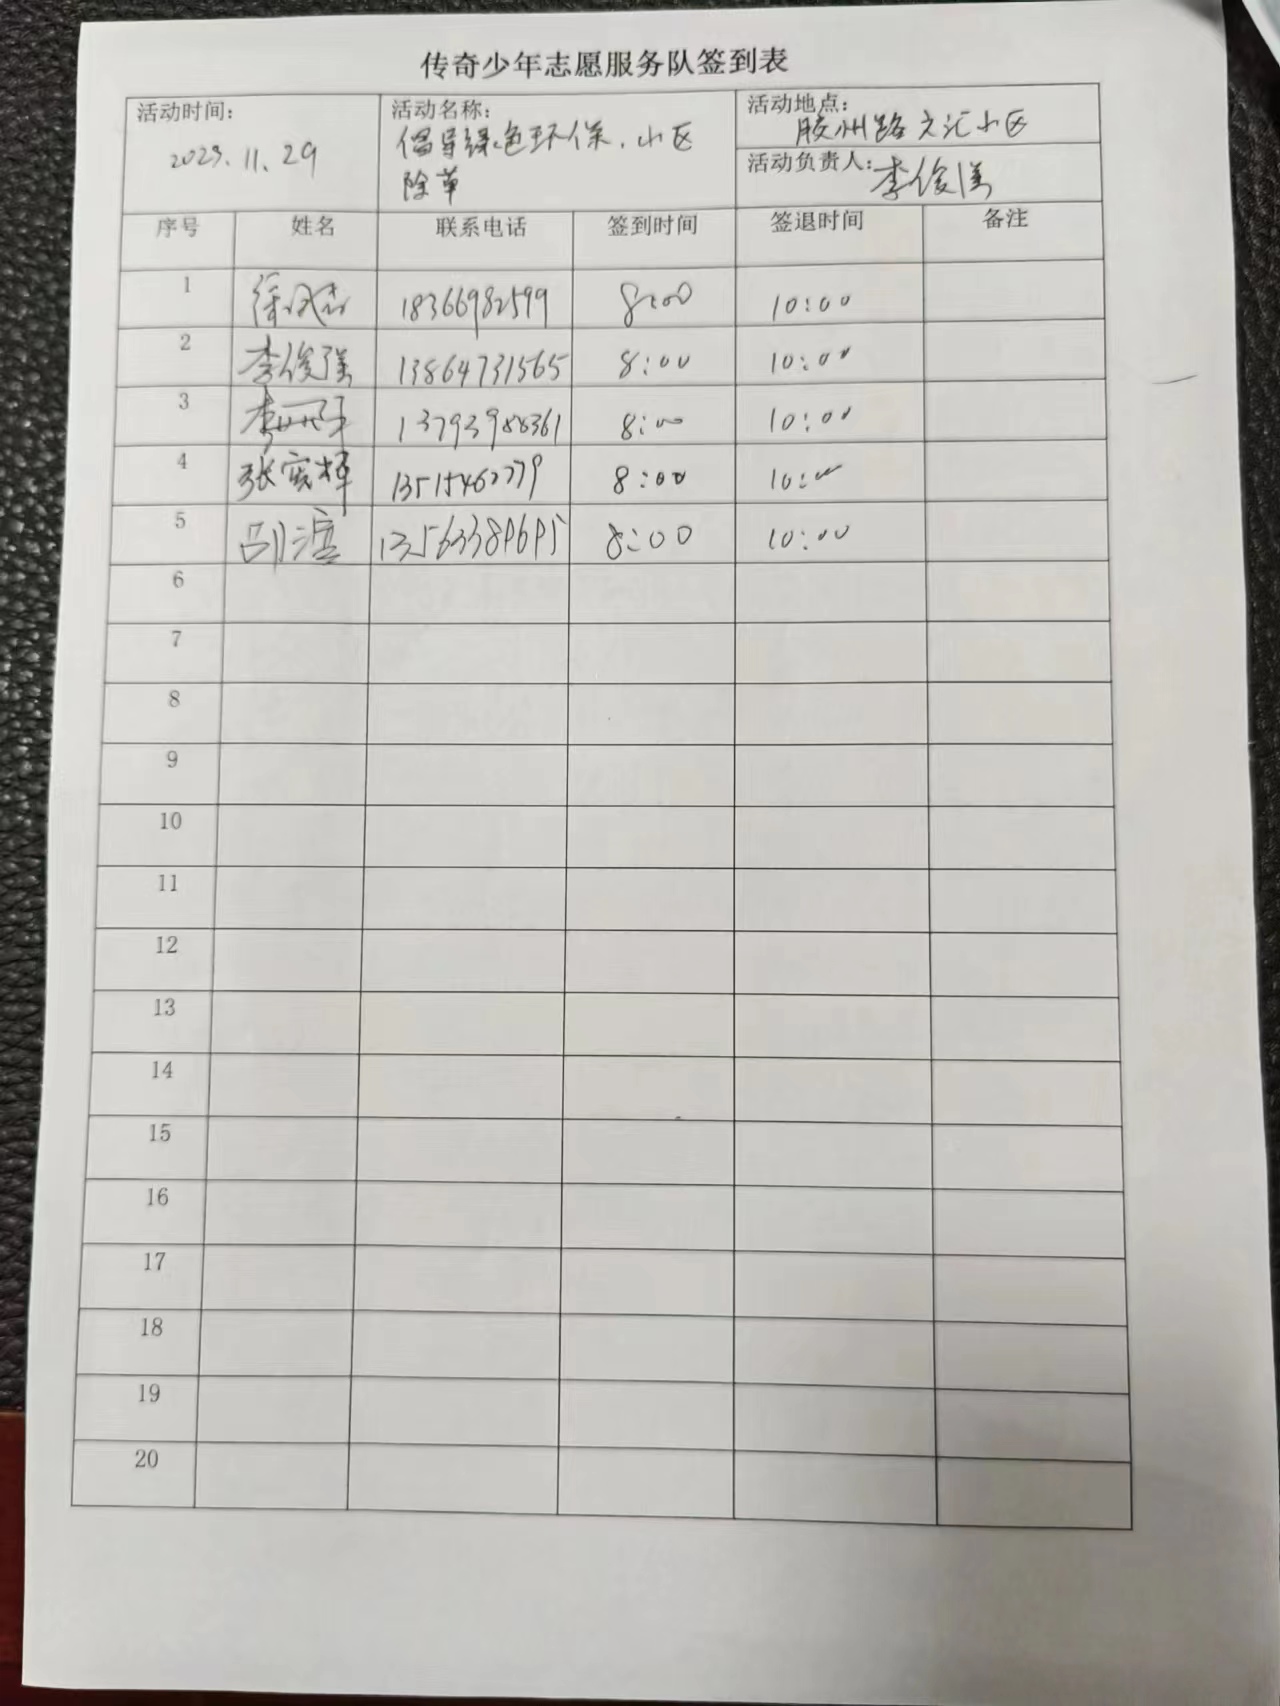 传奇少年志愿服务队签到表
活动时间:
2023.11.29
活动名称:
倡导绿色环保.小区
除草
活动地点:
胶州路文汇小区
活动负责人:李俊强
序号 姓名 联系电话 签到时间 签退时间 备注
1 18366982599 8:00 10:00
2 李俊强 13864731565 8:00 10:00
3 13793988361 8:00 10:00
4 张宪辉 13515462779 8:00 10:00
5 13563389695 8:00 10:00
6
7
8
9
10
11
12
13
14
15
16
17
18
19
20